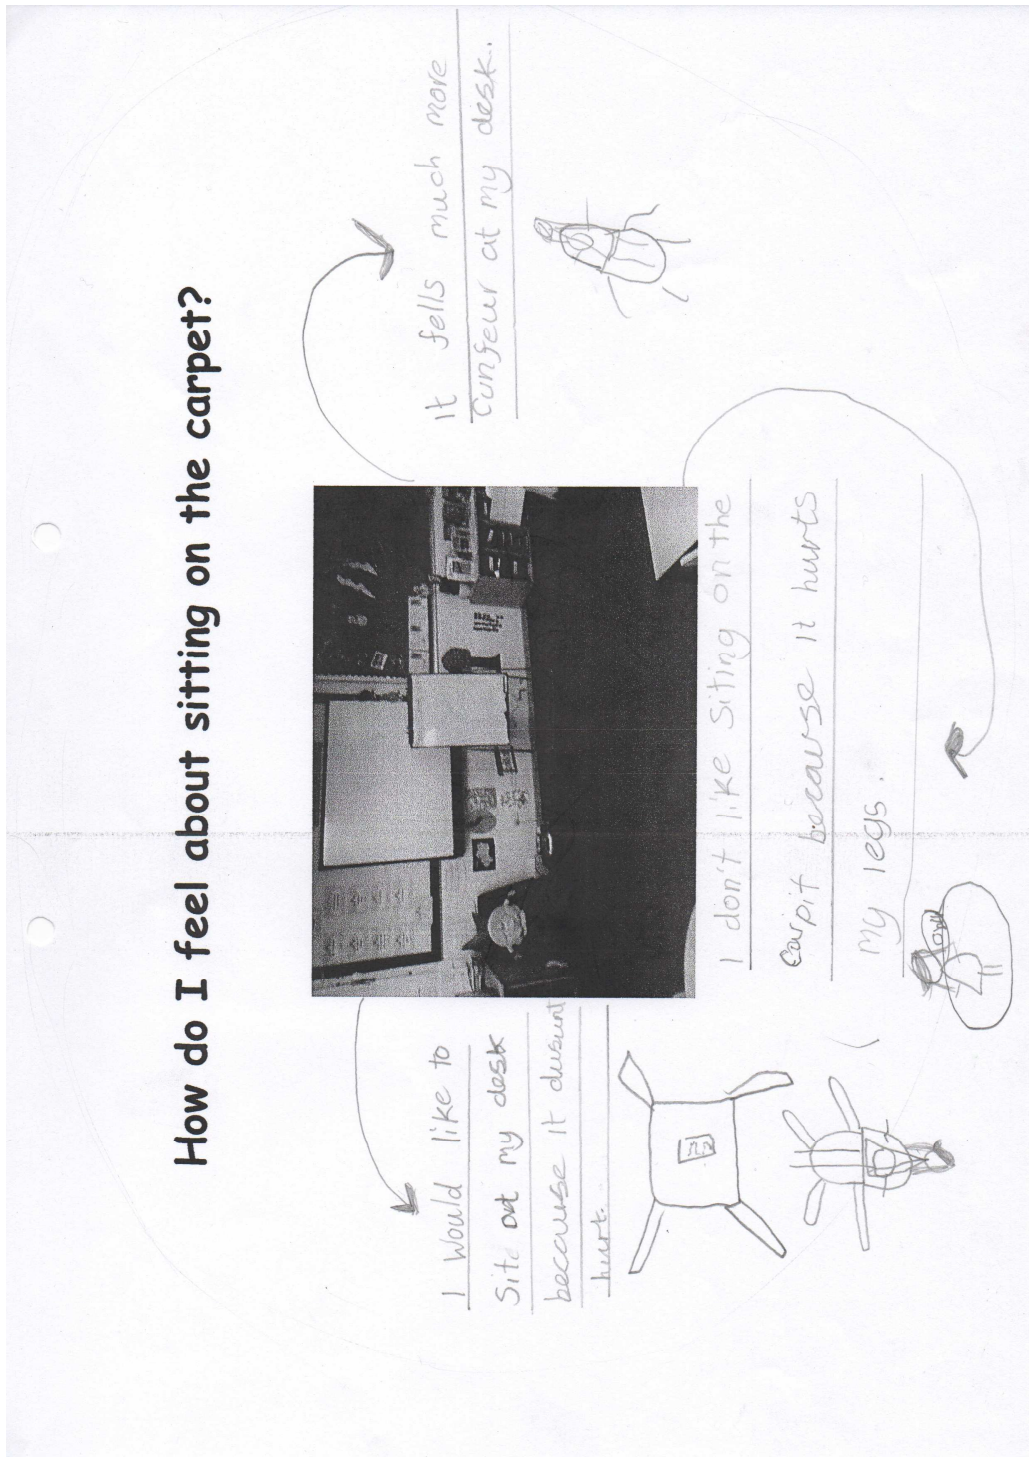 How do I feel about sitting on the carpet?
I Would like to
Sit at my desk
because it dusunt
hurt.
I don't like Siting on the
Carpit because it hurts
my legs.
It fells much more
Cunfeur at my desk.